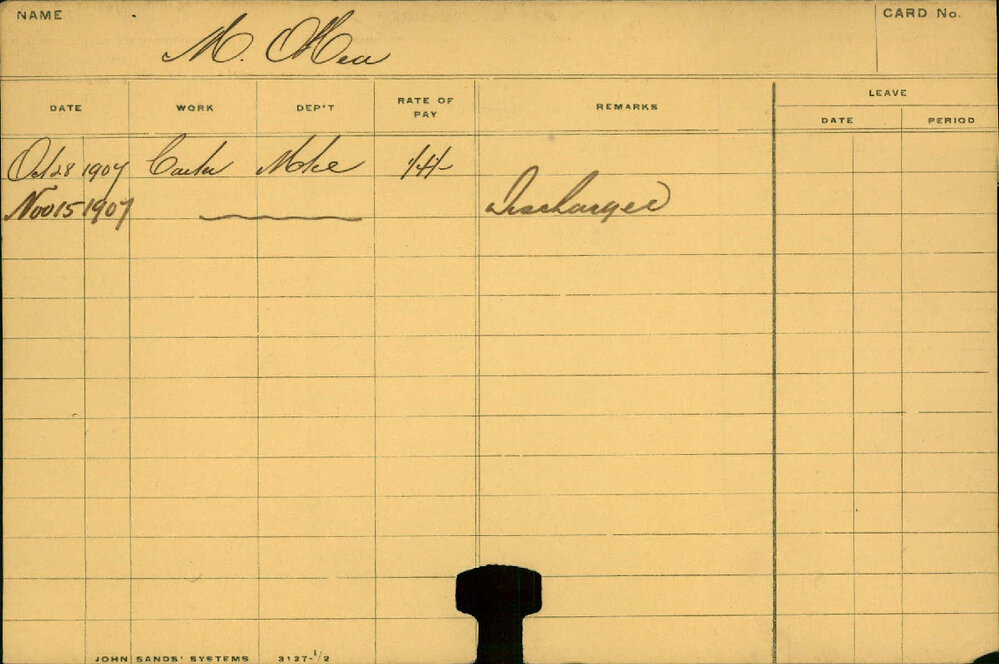 NAME M. O'Mea CARD No.
DATE WORK DEP'T RATE OF PAY REMARKS LEAVE
DATE PERIOD
Oct 28 1907 Carter
Nov 15 1907 Discharged
JOHN SANDS' SYSTEMS 3127-1/2